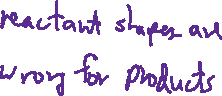 reactant shapes are
wrong for products